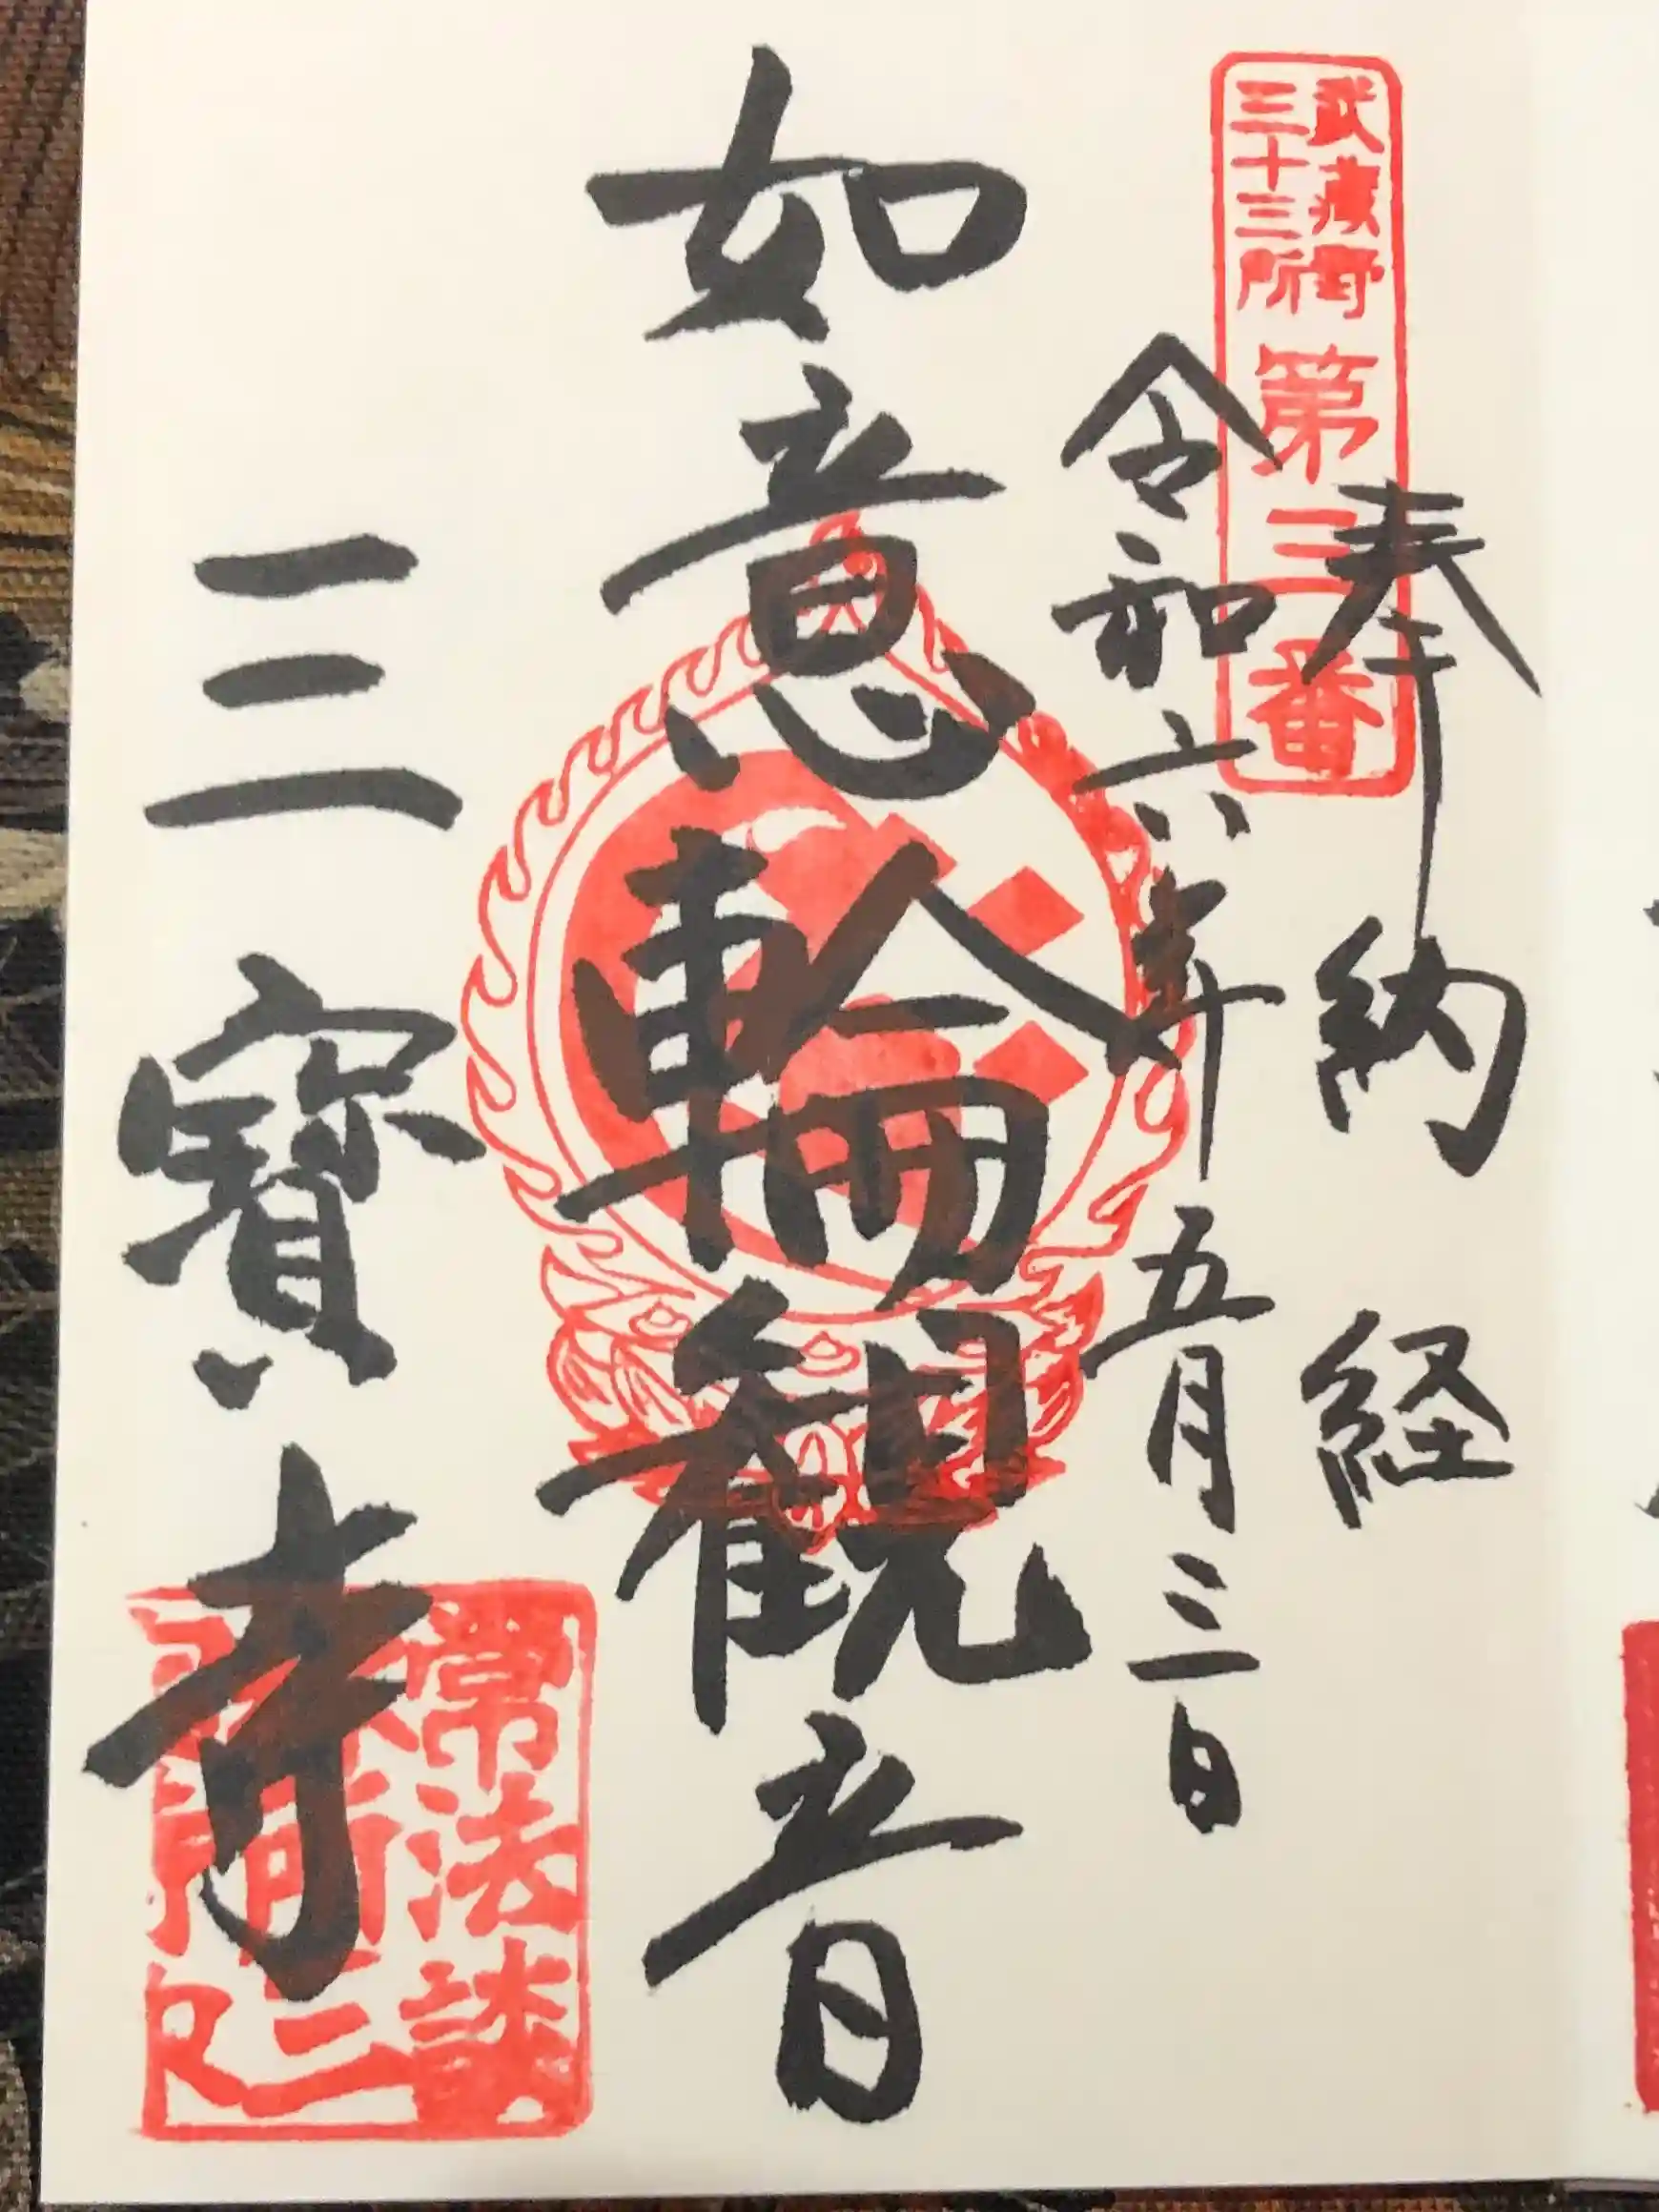 武蔵野
三十三所
第三番
奉納経
令和六年五月三日
如意輪観音
三寶寺
常法談